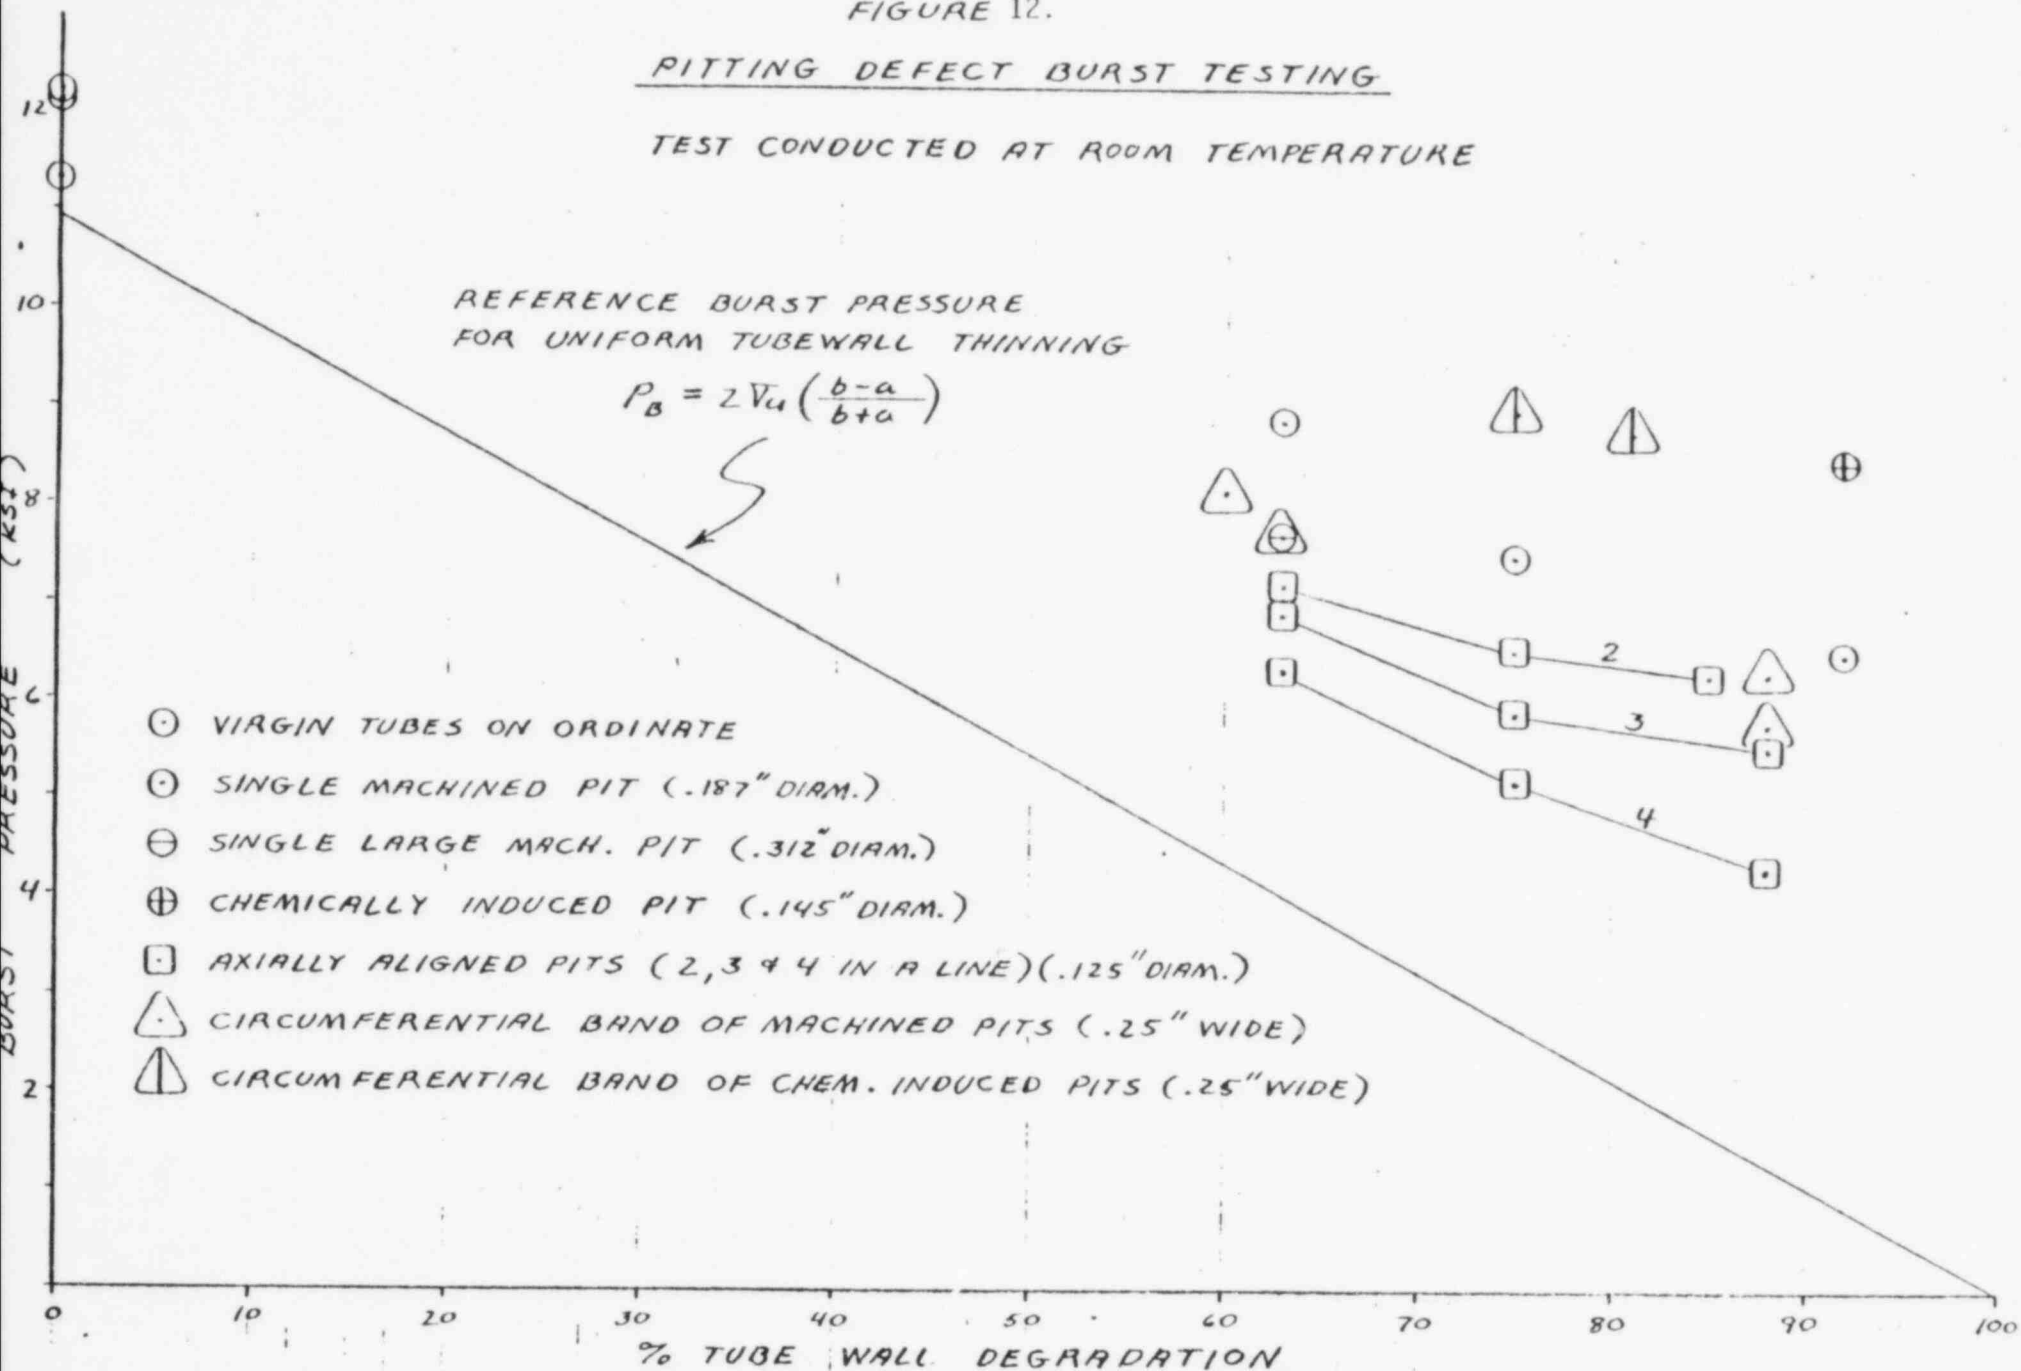 FIGURE 12.
PITTING DEFECT BURST TESTING
TEST CONDUCTED AT ROOM TEMPERATURE
REFERENCE BURST PRESSURE
FOR UNIFORM TUBEWALL THINNING
P_B = 2 σ_u (b-a / b+a)
12
10
8
6
4
2
BURST PRESSURE (KSI)
2
3
4
VIRGIN TUBES ON ORDINATE
SINGLE MACHINED PIT (.187" DIAM.)
SINGLE LARGE MACH. PIT (.312" DIAM.)
CHEMICALLY INDUCED PIT (.145" DIAM.)
AXIALLY ALIGNED PITS (2,3 & 4 IN A LINE)(.125" DIAM.)
CIRCUMFERENTIAL BAND OF MACHINED PITS (.25" WIDE)
CIRCUMFERENTIAL BAND OF CHEM. INDUCED PITS (.25" WIDE)
0 10 20 30 40 50 60 70 80 90 100
% TUBE WALL DEGRADATION